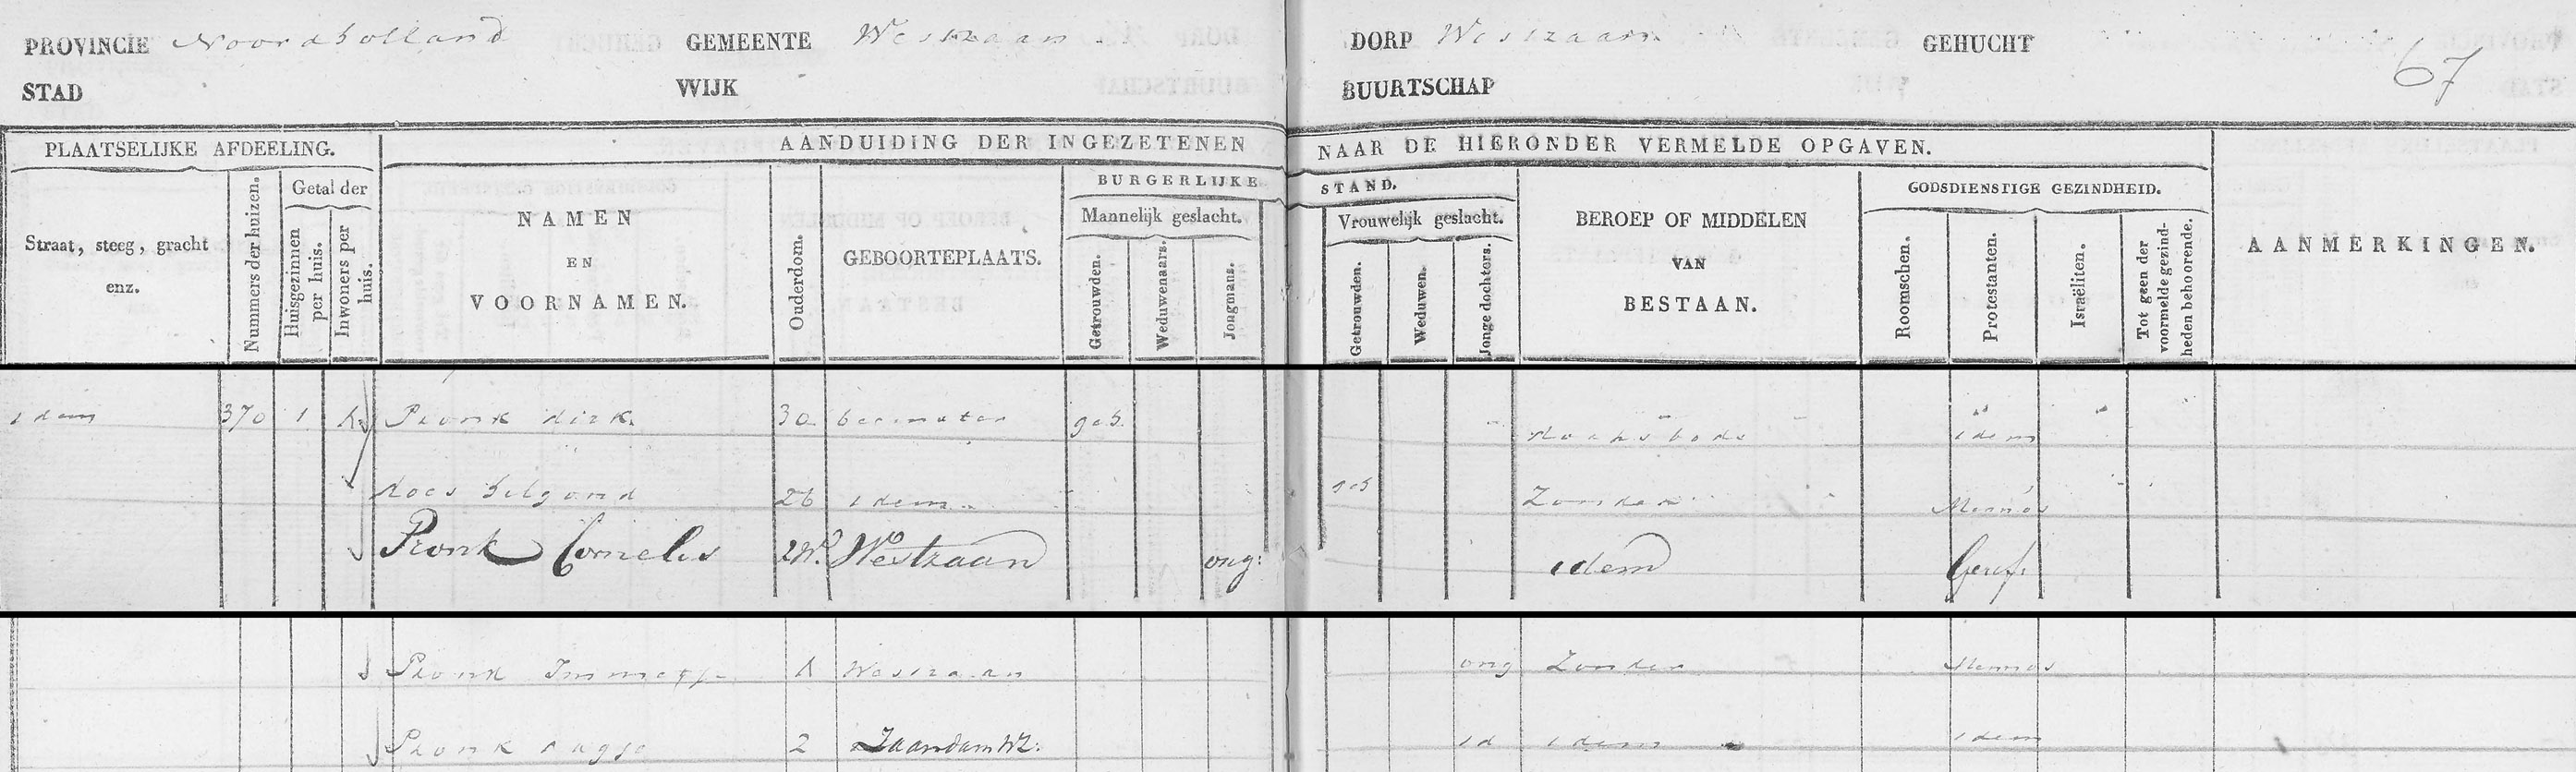 PROVINCIE Noordholland GEMEENTE Westzaan DORP Westzaan GEHUCHT
67
STAD WIJK BUURTSCHAP
PLAATSELIJKE AFDEELING. AANDUIDING DER INGEZETENEN NAAR DE HIERONDER VERMELDE OPGAVEN.
Straat, steeg, gracht
enz.
Nummers der huizen.
Getal der
Huisgezinnen
per huis.
Inwoners per
huis.
NAMEN
EN
VOORNAMEN.
Ouderdom.
GEBOORTEPLAATS.
BURGERLIJKE STAND.
Mannelijk geslacht.
Getrouwden.
Weduwenaars.
Jongmans.
Vrouwelijk geslacht.
Getrouwden.
Weduwen.
Jonge dochters.
BEROEP OF MIDDELEN
VAN
BESTAAN.
GODSDIENSTIGE GEZINDHEID.
Roomschen.
Protestanten.
Israëliten.
Tot geen der
voormelde gezind-
heden behoorende.
AANMERKINGEN.
idem 370 1 Pronk dirk 30 beemster geh. idem
26 idem geh Zonder
Pronk Cornelis 2W. Westzaan ong: idem Geref:
Pronk Westzaan ong Zonder
Pronk 2 Zaandam WZ: id idem idem